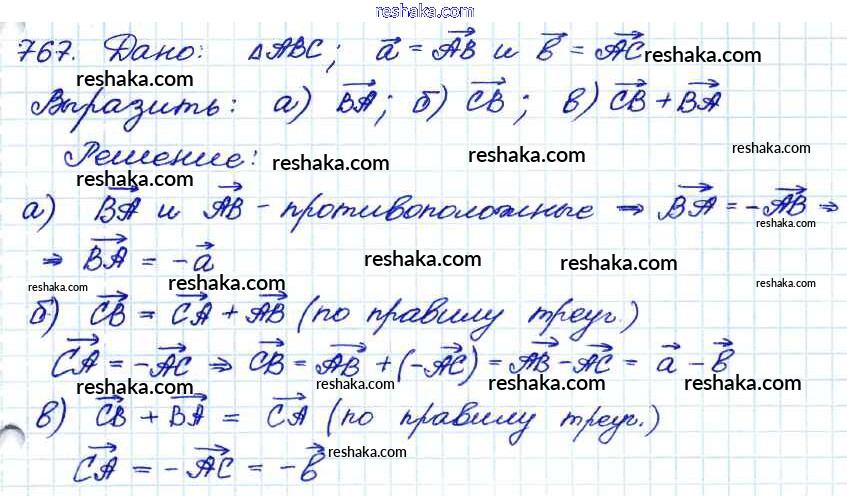 reshaka.com
767. Дано: △ABC; a⃗ = AB⃗ и b⃗ = AC⃗
reshaka.com reshaka.com
Выразить: а) BA⃗; б) CB⃗; в) CB⃗ + BA⃗
Решение: reshaka.com reshaka.com reshaka.com
reshaka.com
а) BA⃗ и AB⃗ - противоположные ⇒ BA⃗ = -AB⃗ ⇒
reshaka.com
⇒ BA⃗ = -a⃗ reshaka.com reshaka.com
reshaka.com reshaka.com reshaka.com
б) CB⃗ = CA⃗ + AB⃗ (по правилу треуг.)
CA⃗ = -AC⃗ ⇒ CB⃗ = AB⃗ + (-AC⃗) = AB⃗ - AC⃗ = a⃗ - b⃗
reshaka.com reshaka.com reshaka.com reshaka.com
в) CB⃗ + BA⃗ = CA⃗ (по правилу треуг.)
CA⃗ = -AC⃗ = -b⃗ reshaka.com